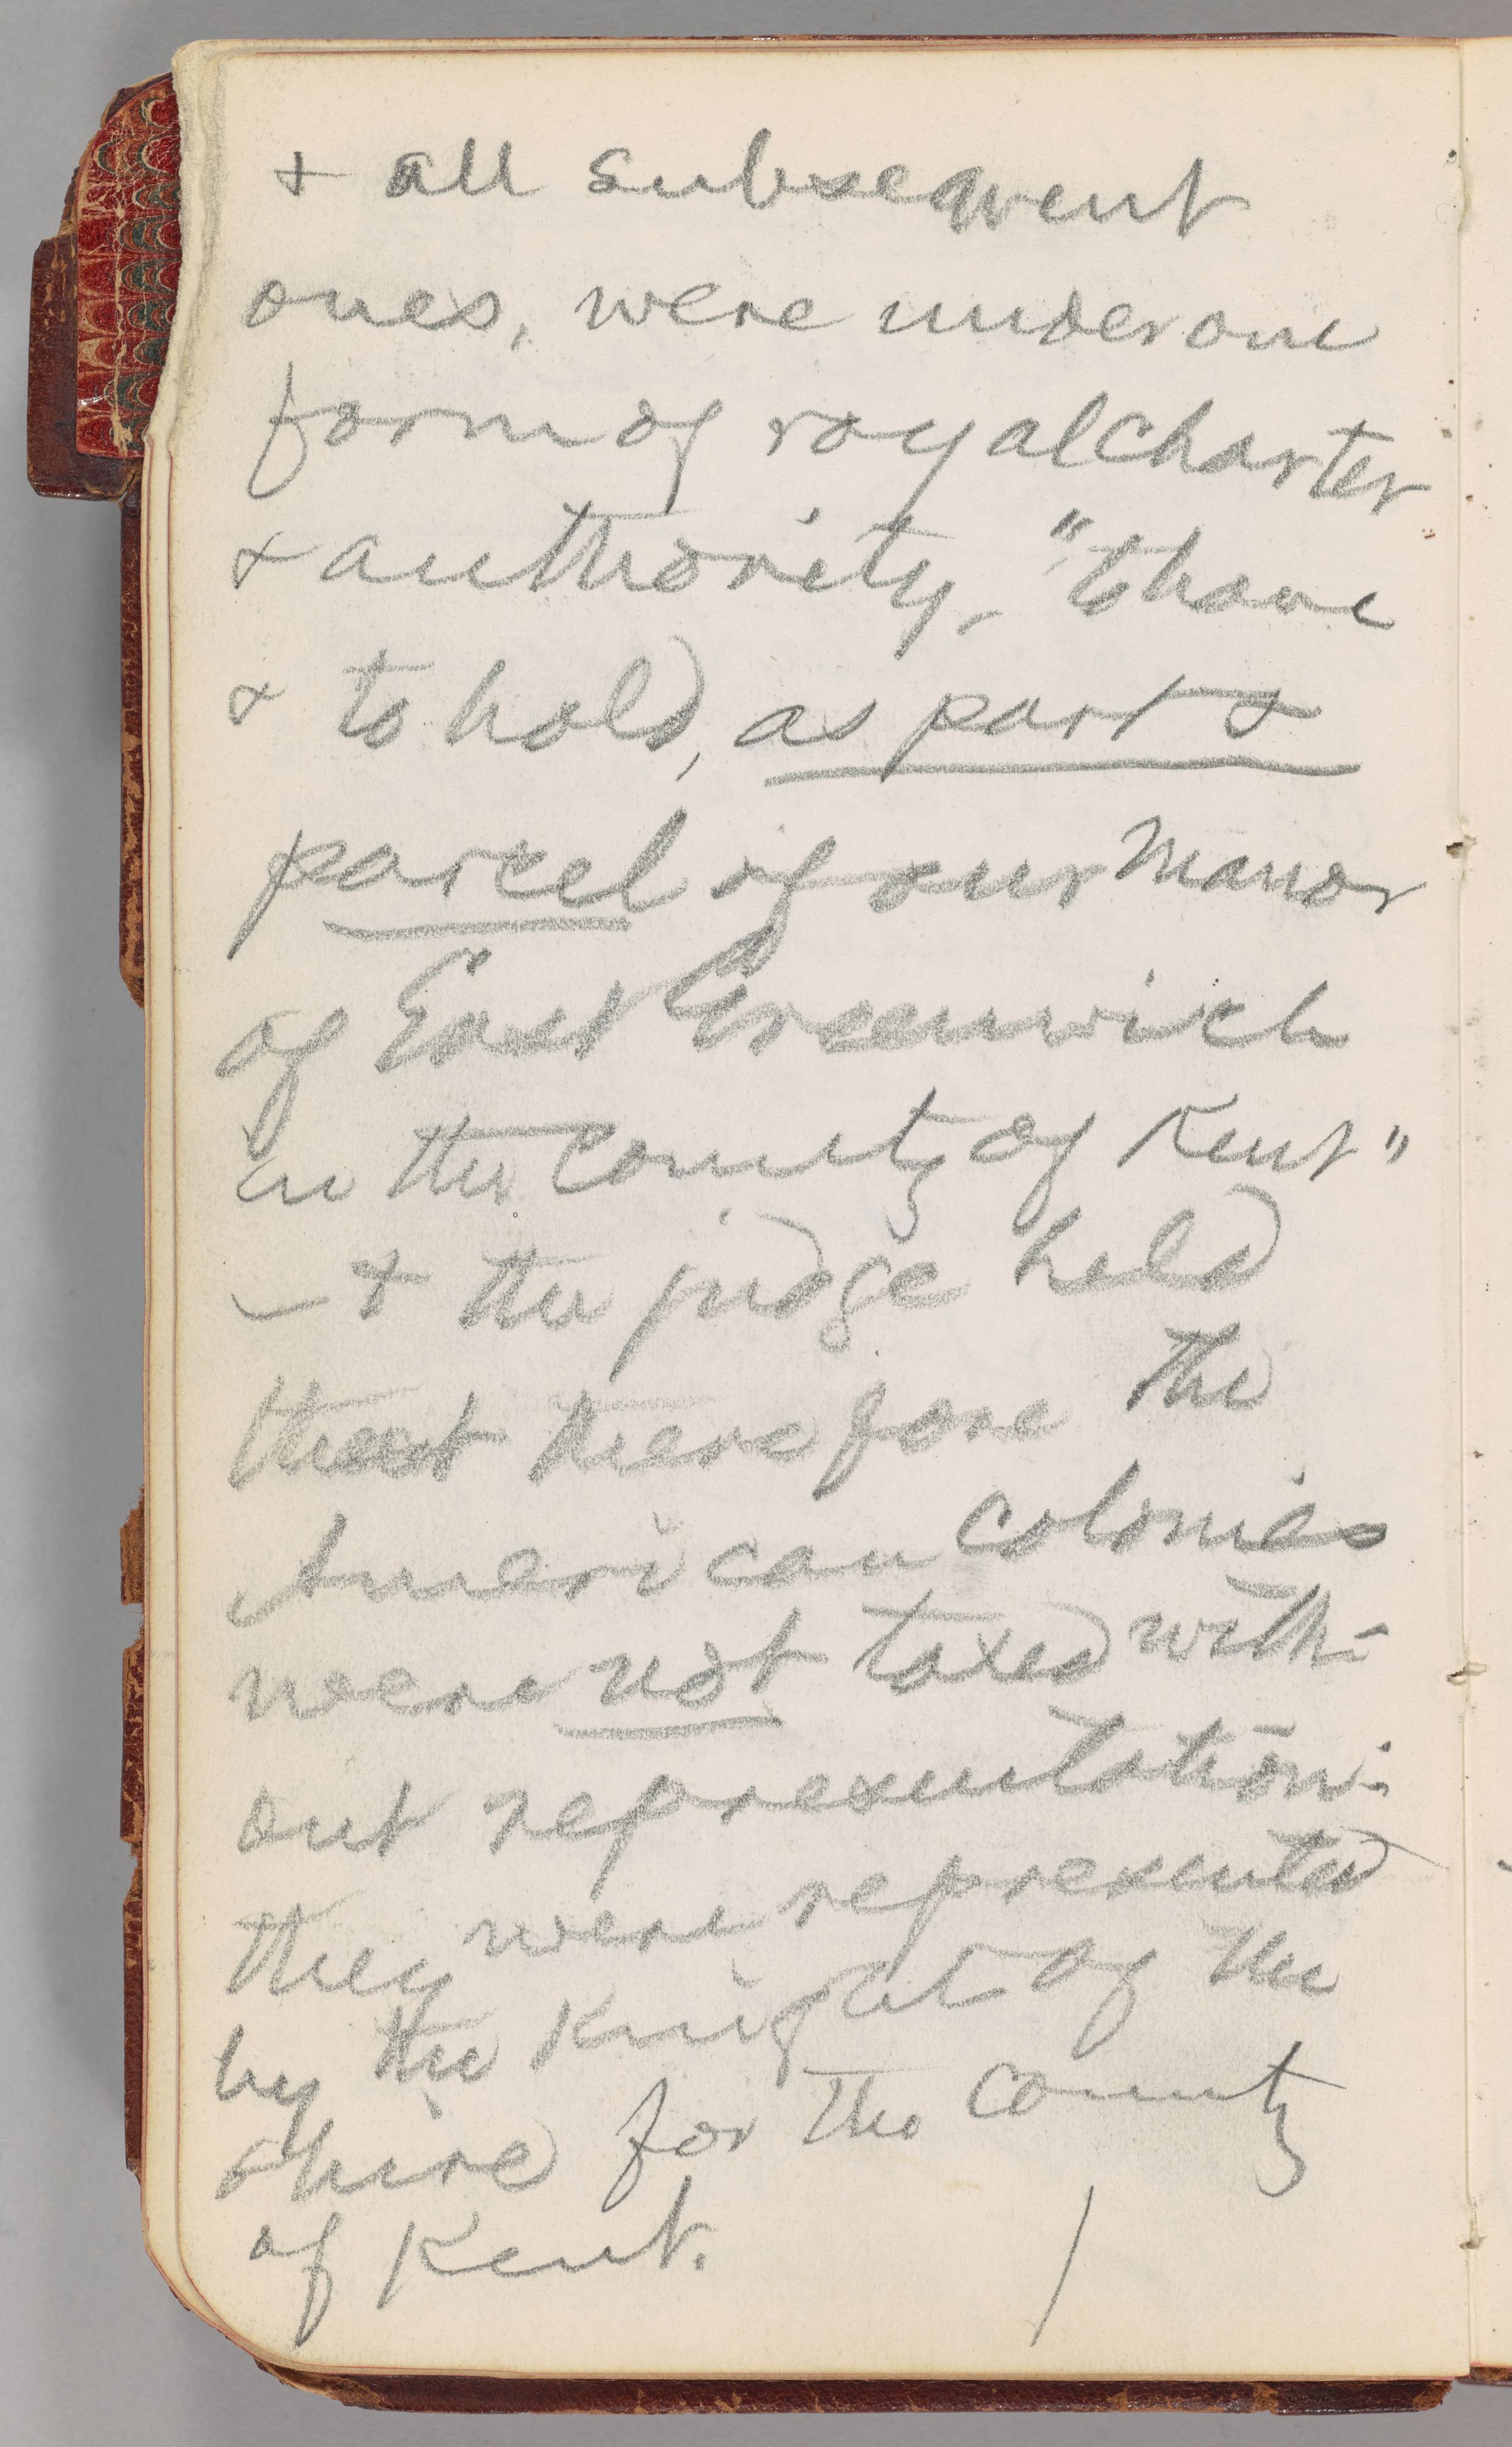 & all subsequent
ones, were under one
form of royal charter
& authority, "to have
& to hold, as part &
parcel of our Manor
of East Greenwich
in the County of Kent"
— & the judge held
that therefore the
American colonies
were not taxed with-
out representation:
they were represented
by the Knight of the
shire for the County
of Kent.